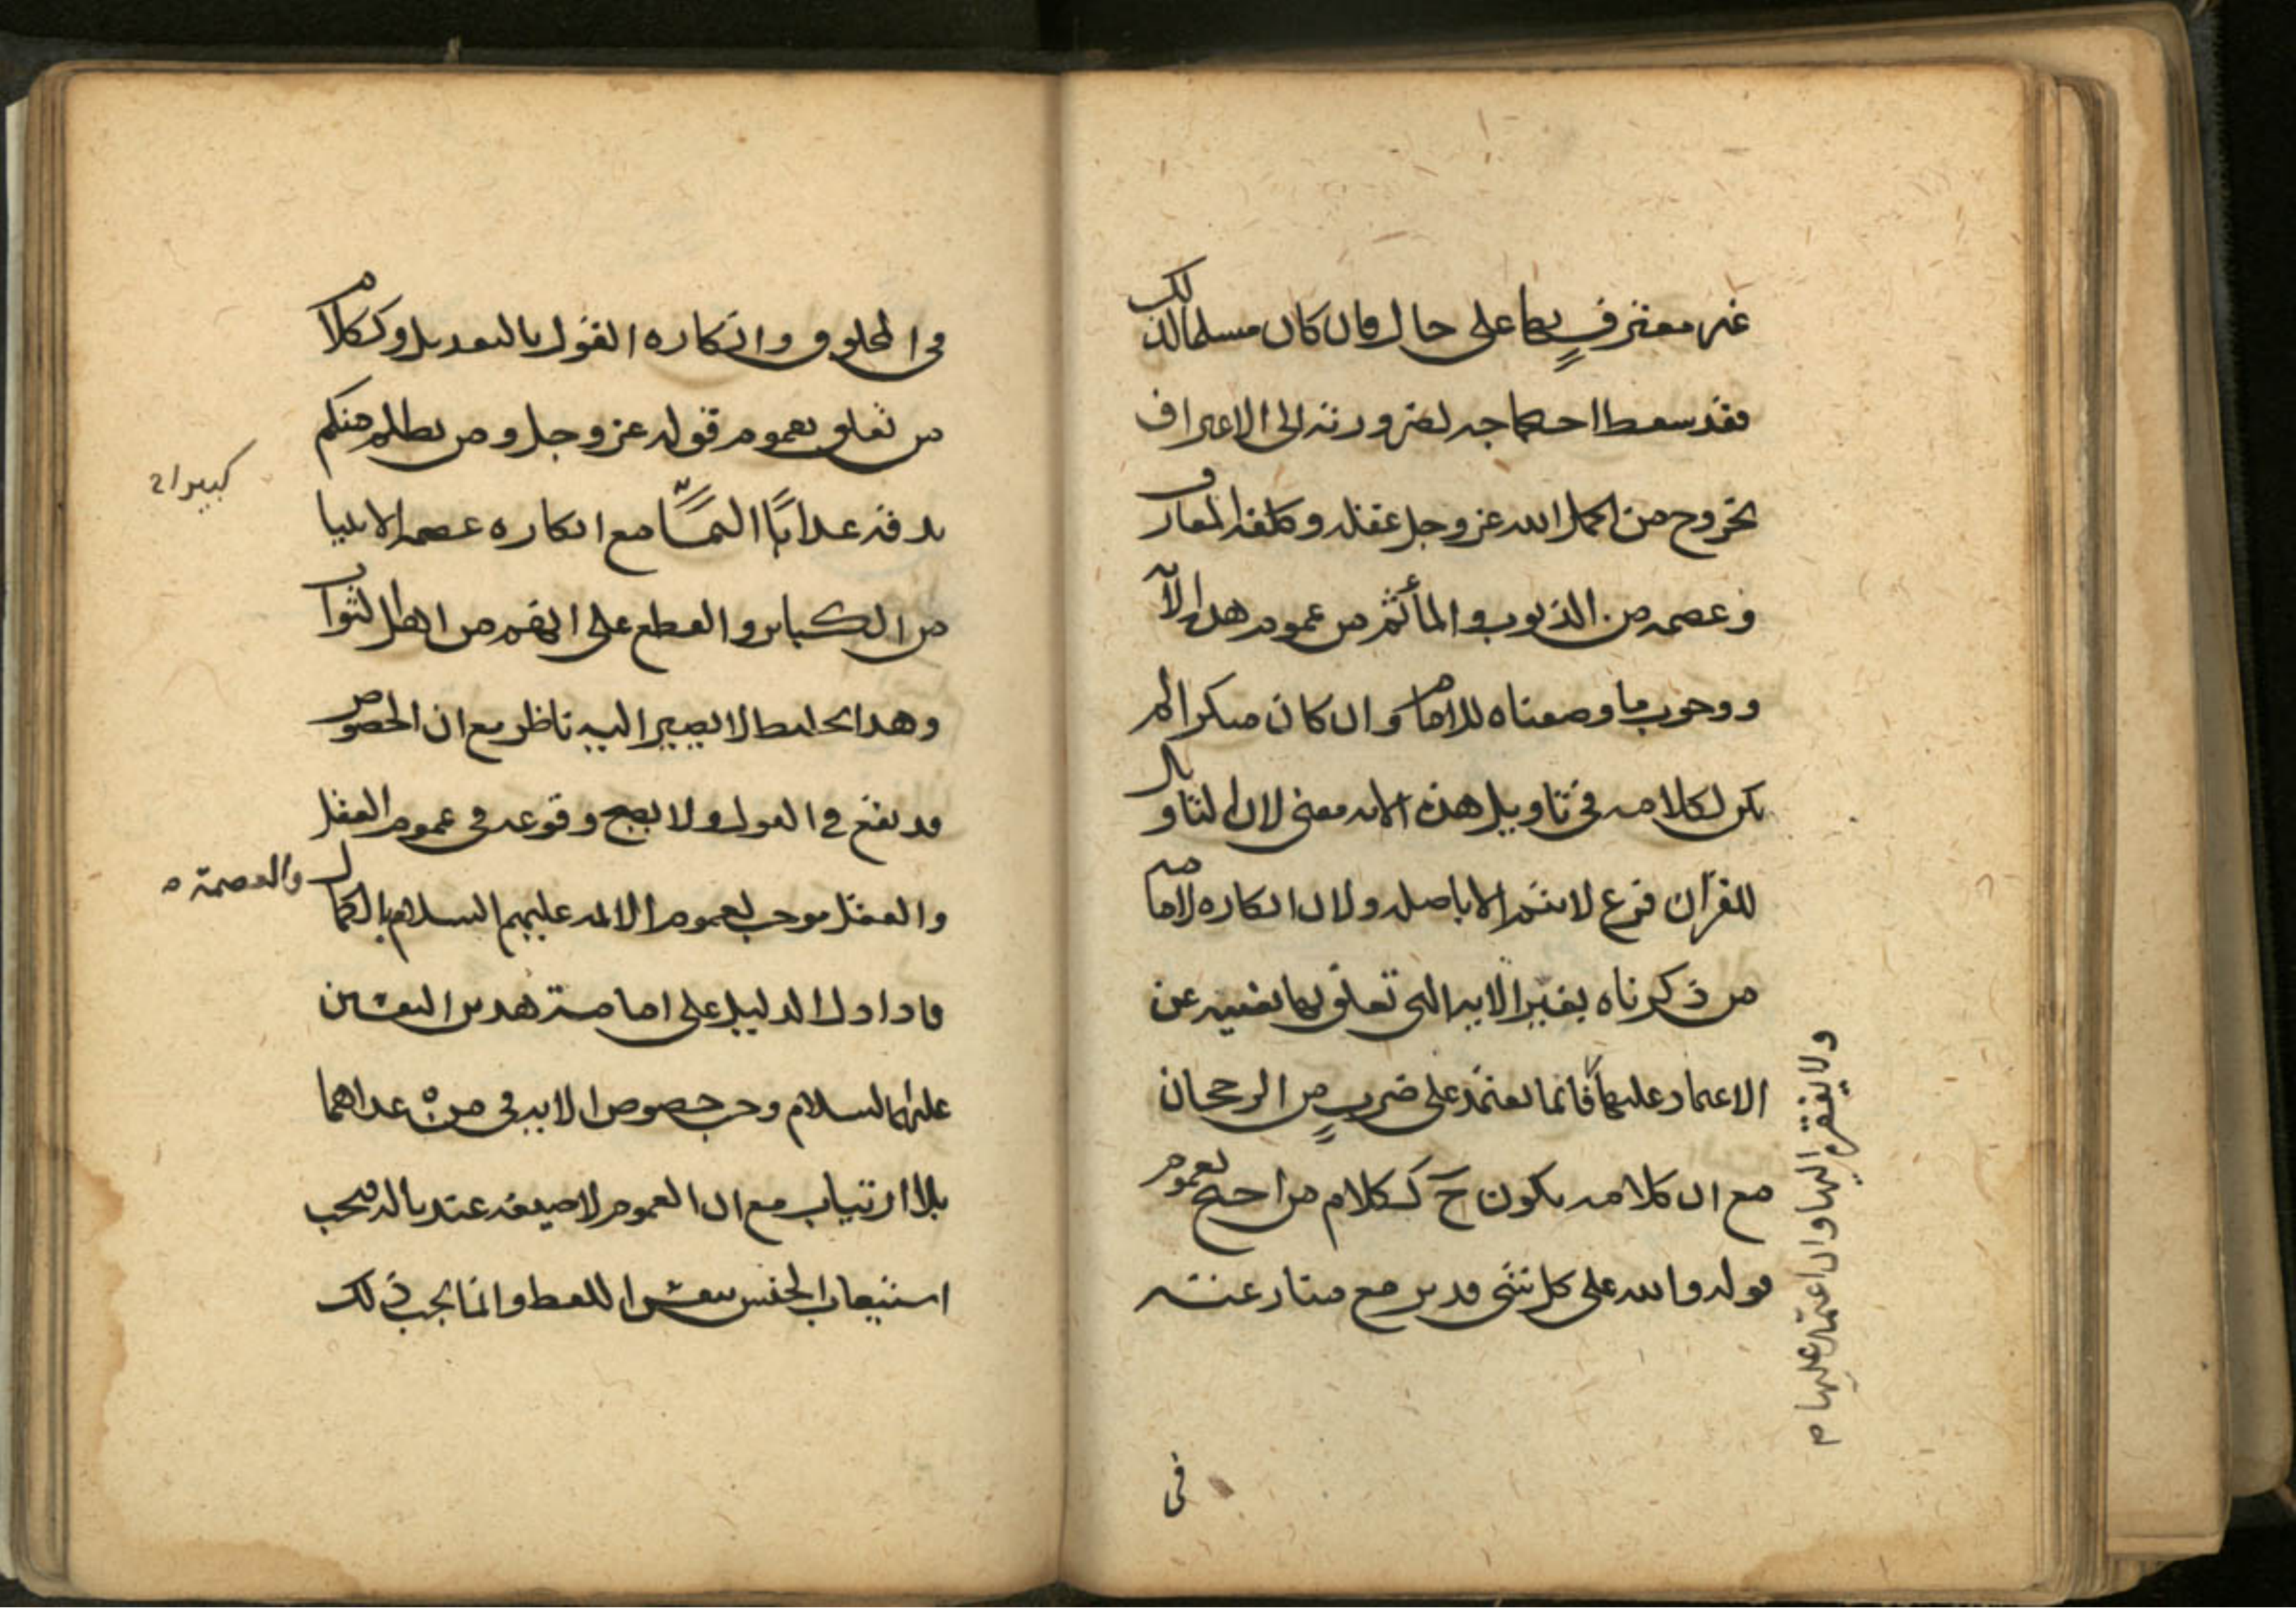 غير معترف بها على حال فان كان مسلما لذلك
فقد سقط احتجاجه لضرورته الى الاعتراف
بخروج من اكمل الله عز وجل عقله وكلفه المعارف
وعصمه من الذنوب والمأثم من عموم هذه الآية
ووجوب ما وصفناه للامام وان كان منكرا لم
يكن لكلامه في تاويل هذه الاية معنى لان التاويل
للقرآن فرع لا يتم الا باصله ولان انكاره لامامة
من ذكرناه بغير الاية التي تعلق بها يغنيه عن
الاعتماد عليها فانما يعتمد على ضرب من الرجحان
ولا يفتقر اليها وان اعتمد عليها م
مع ان كلامه يكون ح ككلام من احتج بعموم
قوله والله على كل شئ قدير مع منازعته
في
في المخلوق وانكاره القول بالتعديل وككلام
من تعلق بعموم قوله عز وجل ومن يظلم منكم
نذقه عذابًا اليمًا مع انكاره عصمة الانبيا
كبيرا
من الكبائر والقطع على انهم من اهل الثواب
وهذا تخليط لا يصير اليه ناظر مع ان الخصوص
قد يقع في القول ولا يصح وقوعه في عموم العقل
والعقل موجب لعموم الائمه عليهم السلام بالكمال
والعصمة ٥
فاذا دل الدليل على امامة هذين النفسين
عليهما السلام وجب خصوص الاية في من عداهما
بلا ارتياب مع ان العموم لا صيغة عندنا له فيجب
استيعاب الجنس بنفس اللفظ وانما يجب ذلك